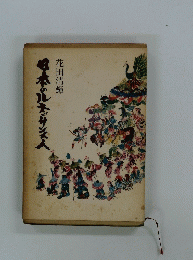 日本のルネッサンス人
花田清輝